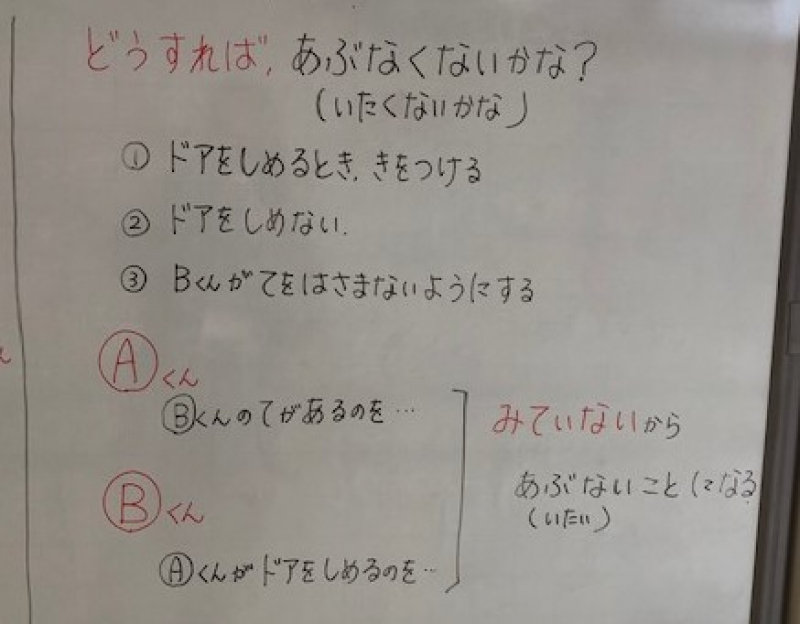 どうすれば、あぶなくないかな？
（いたくないかな）
① ドアをしめるとき、きをつける
② ドアをしめない．
③ Bくんがてをはさまないようにする
Ⓐくん
Ⓑくんのてがあるのを…
みていないから
Ⓑくん
あぶないことになる
（いたい）
Ⓐくんがドアをしめるのを…